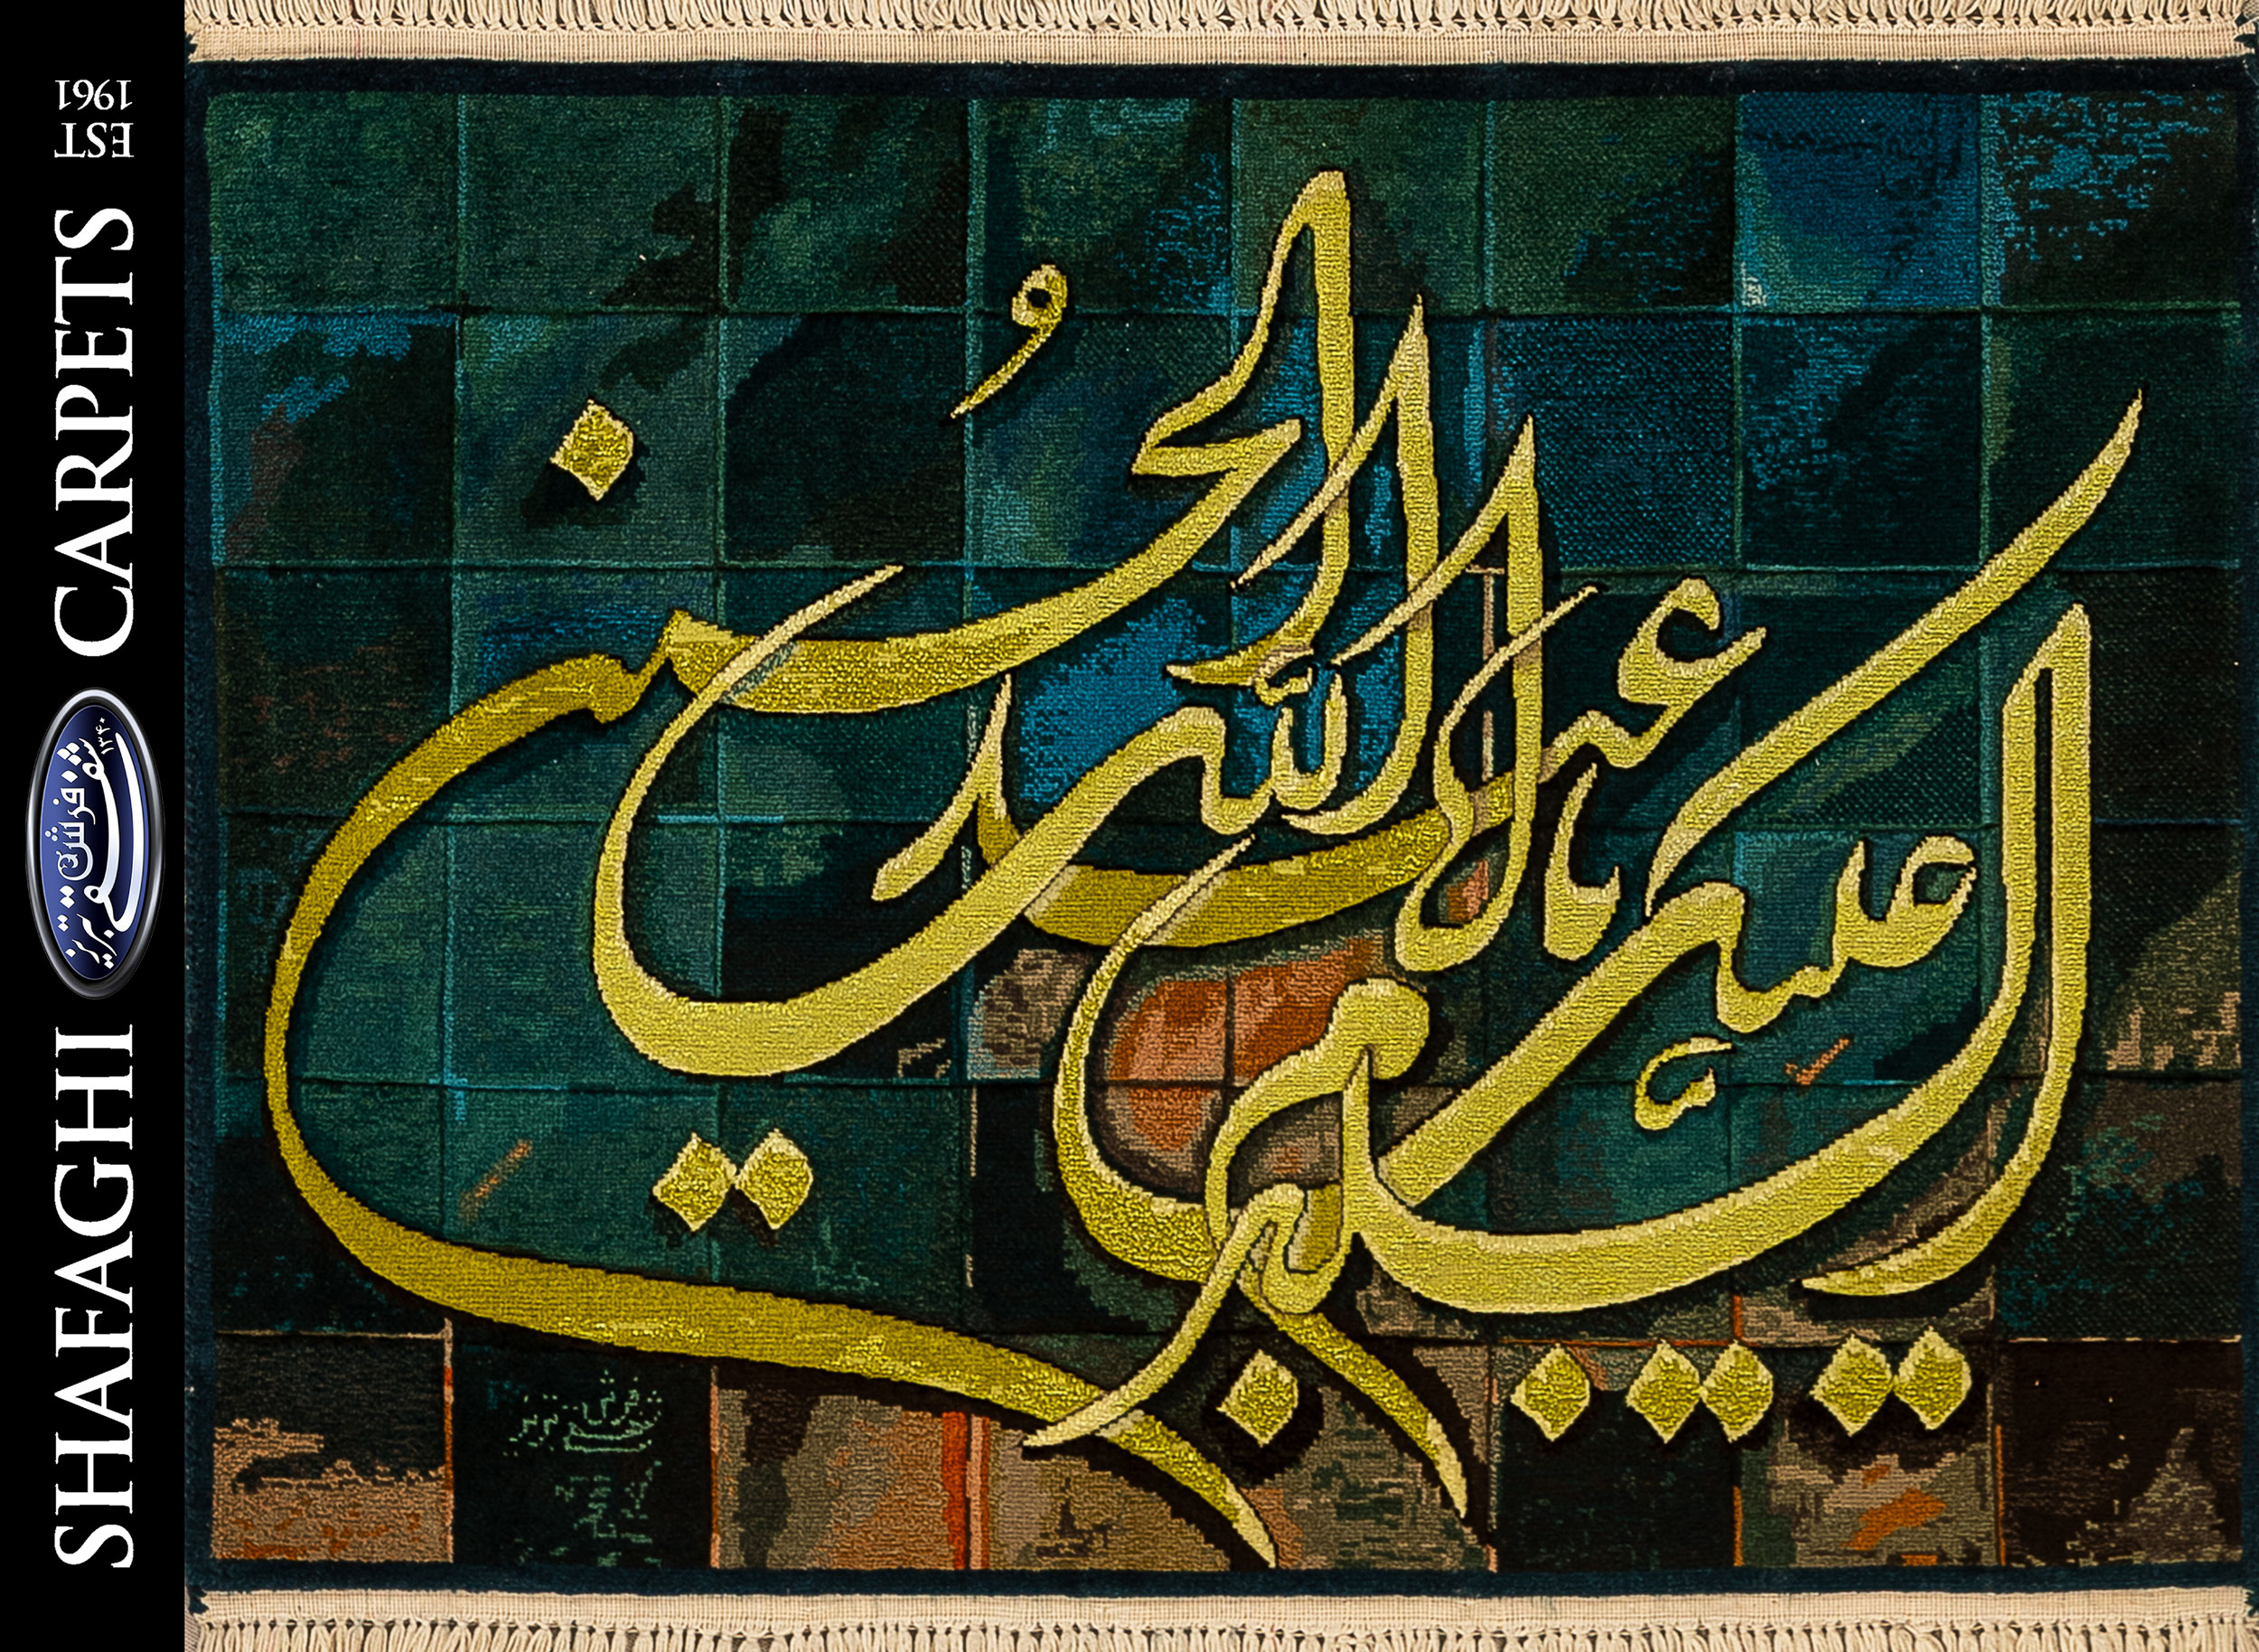 السلام علیک یا ابا عبدالله الحسین
SHAFAGHI CARPETS
EST
1961
فرش شفقی تبریز
۱۳۴۰